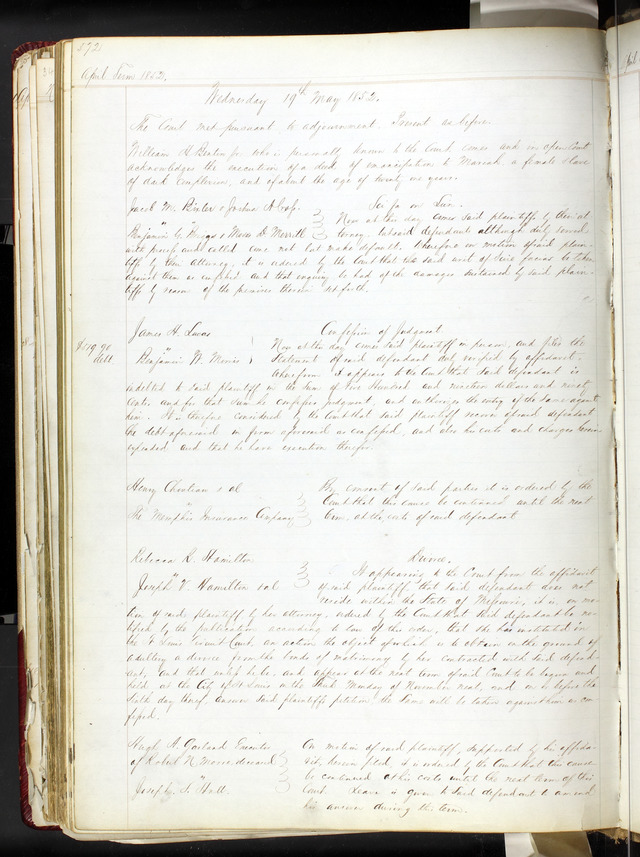 572
April Term 1852.
Wednesday 19th May 1852.
The Court met pursuant to adjournment. Present as before.
William H. Benton jr. who is personally known to the Court comes and in open Court
acknowledges the execution of a deed of emancipation to Mariah, a female slave
of dark complexion, and of about the age of twenty six years.
Jacob M. & Joshua A.
Sci fa on Lien.
Now at this day comes said plaintiffs by their at
Benjamin C. & Moses D. Merritt
torney, but said defendants although duly served
with process and called come not but make default. Wherefore on motion of said plain-
tiffs by their attorney, it is ordered by the Court that the said writ of Scire facias be taken
against them as confessed and that inquiry be had of the damages sustained by said plain-
tiffs by reason of the premises therein set forth.
James H. Lucas
Confession of Judgment
vs
Now at this day comes said plaintiff in person, and files the
$119.90
debt.
Benjamin W.
Statement of said defendant duly verified by affidavit,
wherefrom it appears to the Court that said defendant is
indebted to said plaintiff in the sum of One Hundred and nineteen dollars and ninety
cents and for that sum he confesses judgment, and authorizes the entry of the same against
him. It is therefore considered by the Court that said plaintiff recover of said defendant
the debt aforesaid in form aforesaid as confessed, and also his costs and charges herein
expended and that he have execution therefor.
Henry Chouteau et al
By consent of said parties it is ordered by the
vs
Court that this cause be continued until the next
The Memphis Insurance Company
term, at the costs of said defendant
Rebecca R. Hamilton
Divorce.
vs
It appearing to the Court from the affidavit
Joseph V. Hamilton et al
of said plaintiff that said defendant does not
reside within the State of Missouri, it is, on mo-
tion of said plaintiff by her attorney, ordered by the Court that said defendant be no-
tified by the publication according to law of this order, that she has instituted in
the St Louis Circuit Court, an action the object of which is to obtain on the ground of
adultery a divorce from the bonds of matrimony by her contracted with said defend-
ant, and that unless he be and appear at the next term of said Court to be begun and
held at the City of St Louis on the third Monday of November next, and on or before the
sixth day thereof, answer said plaintiffs petition, the same will be taken against him as con-
fessed.
Hugh A. Garland Executor
On motion of said plaintiff, supported by his affida-
of Robert N. Moore deceased
vit, herein filed, it is ordered by the Court that this cause
vs
be continued at his costs until the next term of this
Joseph S. Hull.
Court. Leave is given to said defendant to amend
his answer during this term.